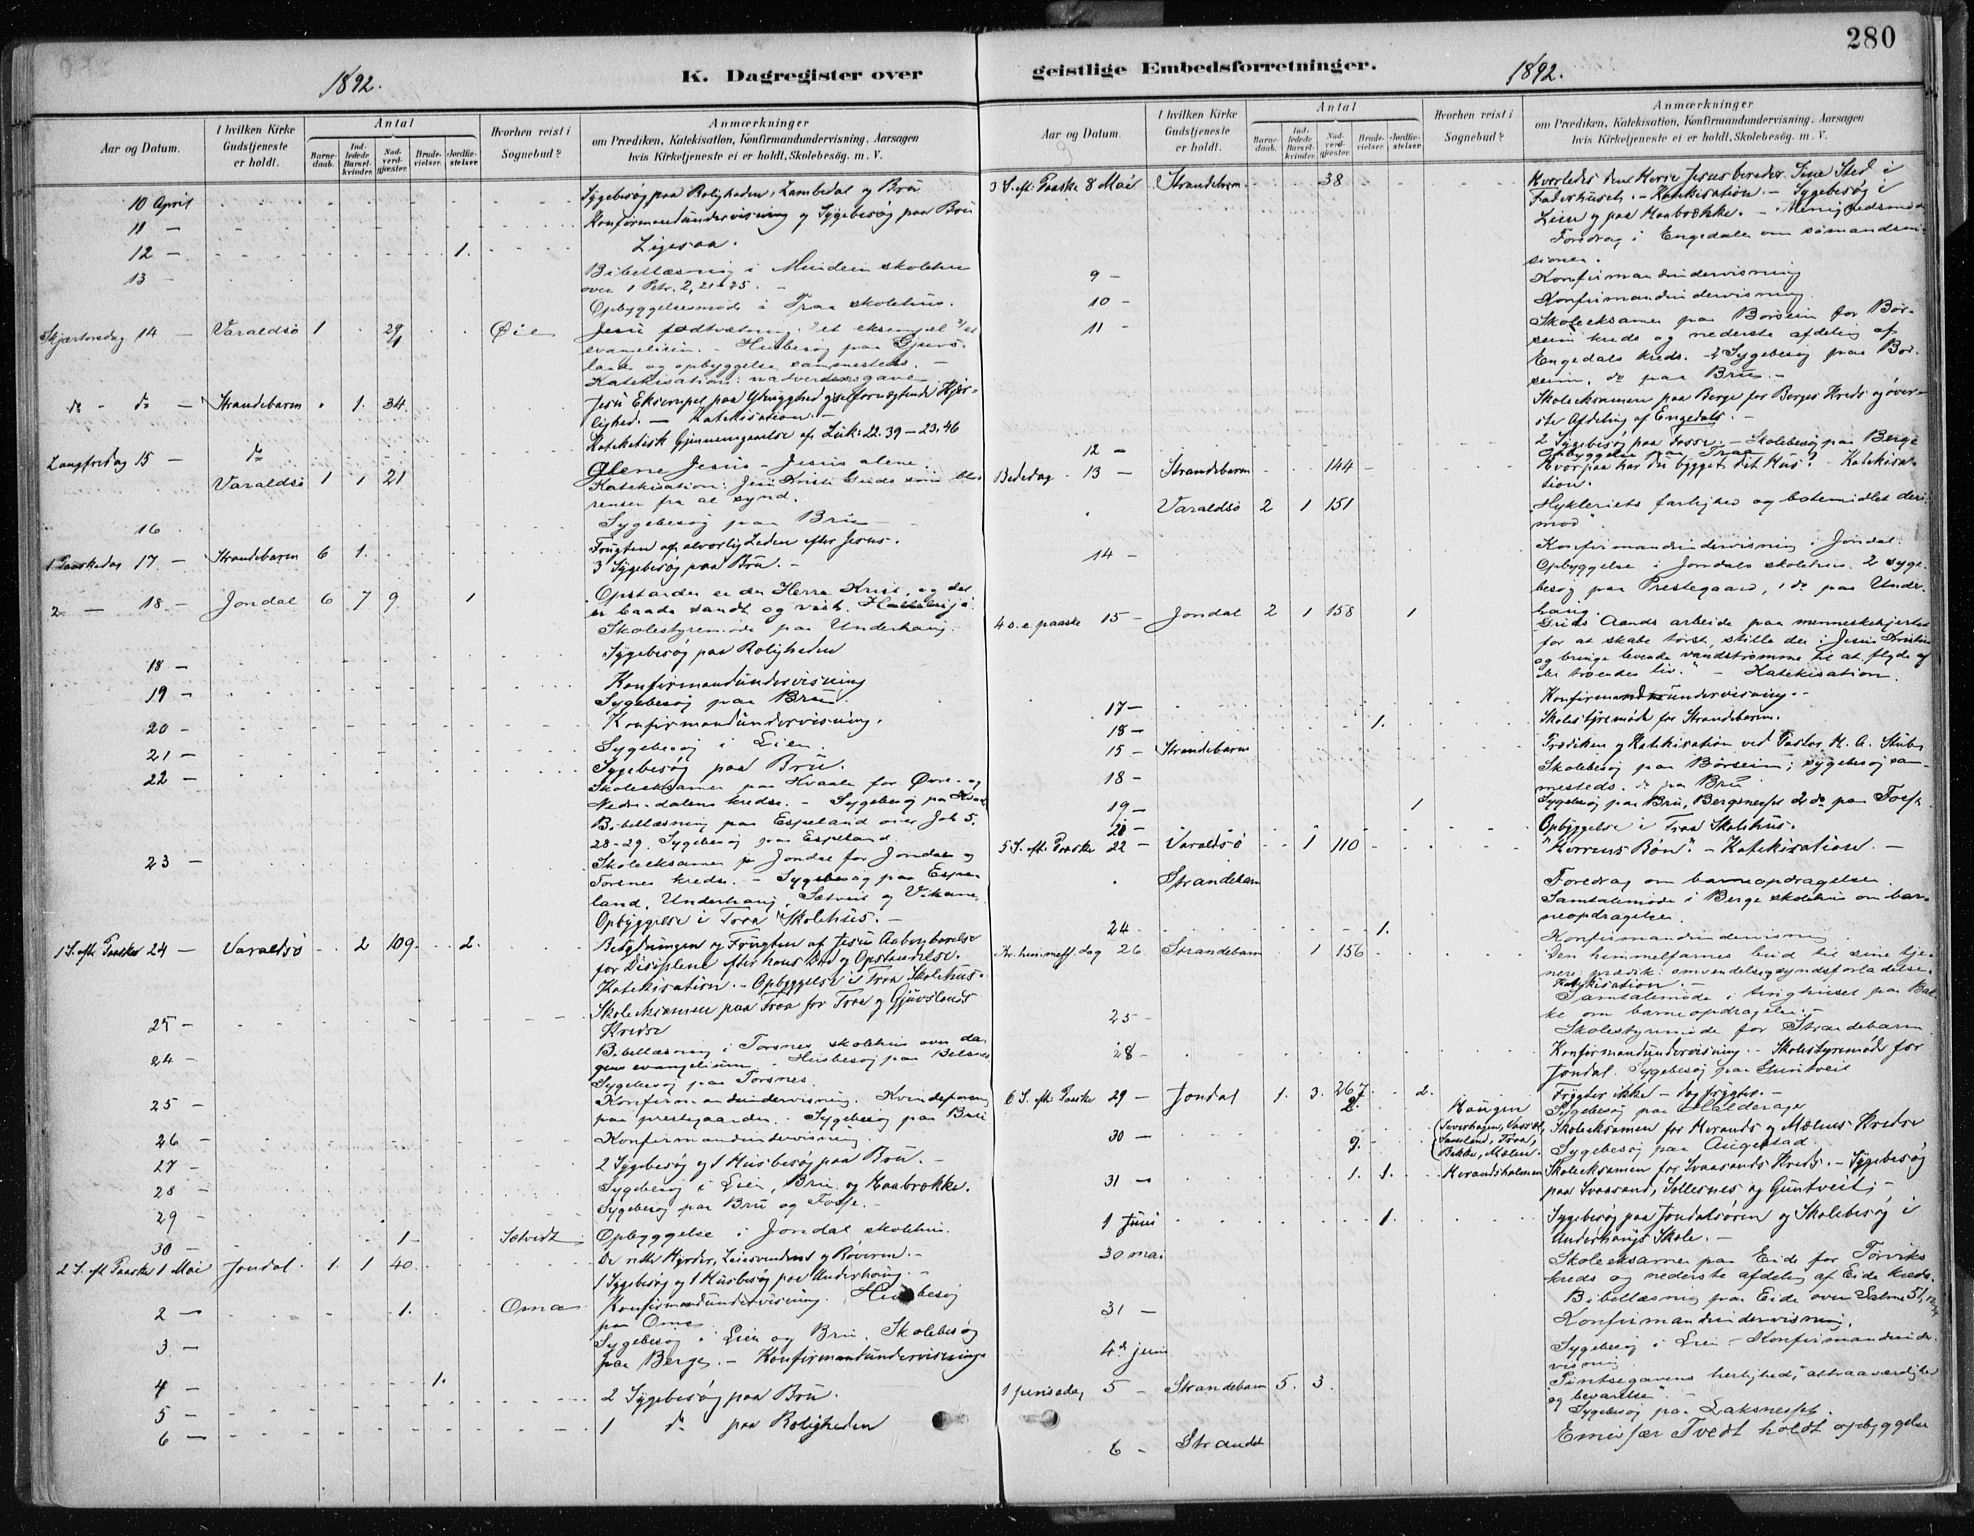 280
1892.
K. Dagregister over geistlige Embedsforretninger.
1892.
Aar og Datum.
I hvilken Kirke Gudstjeneste er holdt.
Antal
Barnedaab.
Indledede Barselkvinder.
Nadverdgjester.
Brudevielser.
Jordfæstelser.
Hvorhen reist i Sognebud?
Anmærkninger
om Prædiken, Katekisation, Konfirmandundervisning, Aarsagen
hvis Kirketjeneste ei er holdt, Skolebesøg. m. V.
10 April Sygebesøg paa Roligheden, Lambedal og Bru
11 — Konfirmandundervisning og Sygebesøg paa Bru
12 — 1. Ligesaa.
13 — Bibellæsning i Mundheim skolehus
over 1 Petr. 2, 21-25. —
Opbyggelsesmøde i Traa skolehus.
Skjærtorsdag 14 — Varaldsø 1 29 Øie Jesu fodtvætning: et eksempel
evangelium. — Husbesøg paa
og opbyggelse sammesteds. —
Katekisation: nadverdens gave.
do - do — Strandebarm 1. 34. Jesu Eksempel paa Ydmyghed og selfornegtende Kjær-
lighed. — Katekisation. —
Langfredag 15 — do Kateketisk Gjennemgaaelse af Luk: 22.39 — 23.46
Varaldsø 1 1 21 Alene Jesus — Jesus alene.
Katekisation: Jesu Kristi Guds søns blod
renser fra al synd.
16 Sygebesøg paa Bru
1 Paaskedag 17 — Strandebarm 6 1. Frugten af alvorlig Leden efter Jesus.
3 Sygebesøg paa Bru. —
2 — 18. — Jondal 6 7 9 1 Opstanden er den Herre Krist, og det
er baade sandt og vist.
Skolestyremøde paa Underhaug.
18 — Sygebesøg paa Roligheden
19 — Konfirmandundervisning
Sygebesøg paa Bru.
20 — Konfirmandundervisning.
21 — Sygebesøg i Lien.
22 — Sygebesøg paa Bru.
Skoleeksamen paa Kvaale for Øvre- og
Nedre-dalens kredse. — Sygebesøg paa
Bibellæsning paa Espeland over Joh 5.
28-29. Sygebesøg paa Espeland.
23 — Skoleeksamen paa Jondal for Jondals og
Torsnes kredse. — Sygebesøg paa Espe-
land, Underhaug, Sætveit og Vikane.
Opbyggelse i Traa Skolehus. —
1 S. efter Paaske 24 — Varaldsø 2 109 2. Betydningen og Frugten af Jesu Aabenbarelse
for Disiplene efter hans Død og Opstandelse.
Katekisation. — Opbyggelse i Traa Skolehus.
25 — Skoleeksamen paa Traa for Traa og Gjuvslands
Kredse
24 — Bibellæsning i Torsnes skolehus over da-
gens evangelium. Husbesøg paa Belsnes
Sygebesøg paa Torsnes.
25 — Konfirmandundervisning. Kvindeforening
paa prestegaarden. Sygebesøg paa Bru
26 — Konfirmandundervisning.
27 — 2 Sygebesøg og 1 Husbesøg paa Bru. —
28 — Sygebesøg i Lien, Bru og Haabrække.
29 — Sygebesøg paa Bru og Fosse. —
30 — 1 Sætvedt Opbyggelse i Jondal skolehus.
2 S. eft Paaske 1 Mai Jondal. 1. 1 40. De rette Hyrder, Leiesvendene og Røveren. —
1 Sygebesøg og 1 Husbesøg paa Underhaug. —
2 — 1. Oma Konfirmandundervisning. Husbesøg
paa Oma
3 — Sygebesøg i Lien og Bru. Skolebesøg
paa Berge. — Konfirmandundervisning.
4 — 1.
5 — 2 Sygebesøg paa Bru.
6 — 1 do paa Roligheden
Aar og Datum.
I hvilken Kirke Gudstjeneste er holdt.
Antal
Barnedaab.
Indledede Barselkvinder.
Nadverdgjester.
Brudevielser.
Jordfæstelser.
Hvorhen reist i Sognebud?
Anmærkninger
om Prædiken, Katekisation, Konfirmandundervisning, Aarsagen
hvis Kirketjeneste ei er holdt, Skolebesøg. m. V.
3 S. eft. Paaske 8 Mai Strandebarm 38 Hvorledes den Herre Jesus bereder Sine Sted i
Faderhuset. — Katekisation. — Sygebesøg i
Lien og paa Haabrække. — Menighedsmøde
Foredrag i Engedalen om sømandsmi-
sionen.
9 — Konfirmandundervisning
10 — Konfirmandundervisning.
11 — Skoleeksamen paa Børseim for Bør-
seim kreds og nederste afdeling af
Engedals kreds. Sygebesøg paa Bør-
seim, do paa Bru. —
Skoleeksamen paa Berge for Berges Kreds og øver-
ste Afdeling af Engedals. —
12 — 2 Sygebesøg paa Fosse. — Skolebesøg paa Berge
Opbyggelse paa Traa
Bededag 13 — Strandebarm 144 Hvorpaa har du bygget dit Hus? — Katekisa-
tion.
Varaldsø 2 1 151 "Hykleriets farlighed og botemidlet der
mod."
14 — Konfirmandundervisning i Jondal.
Opbyggelse i Jondals skolehus. 2 syge-
besøg paa Prestegaard, 1 do paa Under-
haug.
4 s. e. paaske 15 — Jondal 2 1 158 1 Guds Aands arbeide paa menneskehjertet
for at skabe tørst, stille den i Jesus Kristus
og bringe levende vandstrømme til at flyde af
det troendes liv." — Katekisation.
17 — Konfirmandundervisning. —
18 — 1. Skolestyremøde for Strandebarm.
15 — Strandebarm Prædiken og Katekisation ved Pastor K. A. Stub.
18 — Skolebesøg paa Børseim; sygebesøg sam-
mesteds. do paa Bru
19 — 1 Sygebesøg paa Bru, Bergsnesset 2 do paa Fosse.
21 — Opbyggelse i Traa Skolehus.
5 S. eft. Paaske 22 — Varaldsø 1 110 "Herrens Bøn." — Katekisation. —
Strandebarm Foredrag om barneopdragelsen.
Samtalemøde i Berge skolehus om bar-
neopdragelsen.
24 — 1. Konfirmandundervisning
Kr. himmelf. dag 26 Strandebarm 1 156 Den himmelfarnes bud til sine tje-
nere: prædik: omvendelse og syndsforladelse.
Katekisation. —
Samtalemøde i tinghuset paa Bak-
ke om barneopdragelse. —
25 — Skolestyremøde for Strandebarm
28 — Konfirmandundervisning. — Skolestyremøde for
Jondal. Sygebesøg paa Guntveit
6 S. eft. Paaske 29 — Jondal 1. 3. 267 2. Frygter ikke — og frygter. —
2. Haugen Sygebesøg paa Halderager
30 — 9. Skoleeksamen for Herands og Mælens Kredse
Samland, Traa,
Bakke, Mælen. Sygebesøg paa Augestad
31 — 1. 1. Herandsholmen Skoleeksamen for Svaasands Kreds. — Sygebesøg
paa Svaasand, Sollesnes og Guntveit; —
1 Juni 1. Sygebesøg paa Jondalsøren og Skolebesøg i
Underhaugs Skole. —
30 mai Skoleeksamen paa Eide for Torviks
kreds og nederste afdeling af Eide kreds.
Bibellæsning paa Eide over Salme 51,
31 — Konfirmandundervisning.
4de juni Sygebesøg i Lien — Konfirmandunder-
visning
1 pinsedag 5 — Strandebarm 5. 3. Pintsegavens herlighed, attraaværdighed
og bevarelse". —
Sygebesøg paa Laksnesset.
6 — Strandeb Emissær Tvedt holdt opbyggelse